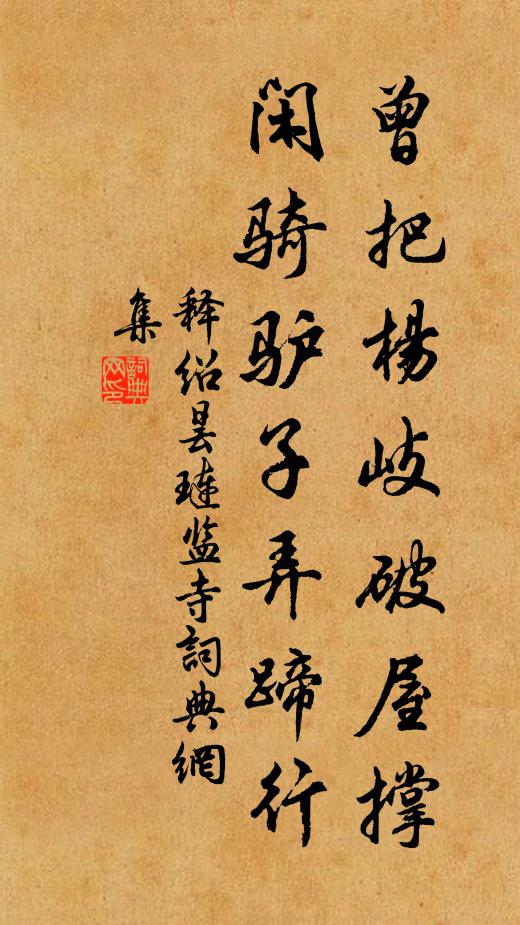 曾把楊岐破屋撑
闲骑驴子弄蹄行
释绍昙琏监寺詞典網
集
詞典
网印